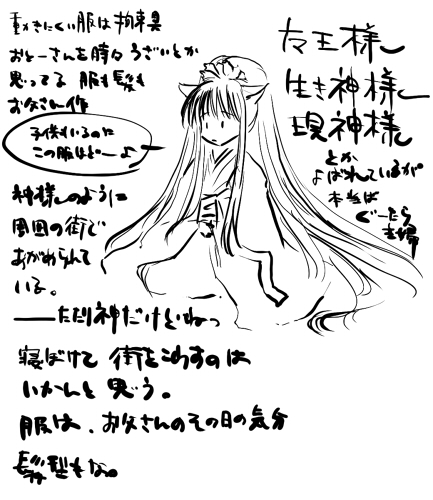 動きにくい服は拘束具
おとーさんを時々うざいとか
思ってる 服も髪も
お父さん作
子供もいるのに
この服はどーよ
神様のように
周囲の街で
あがめられて
いる。
――ただ神だけどねっ
寝ぼけて街をこわすのは
いかんと思う。
服は、お父さんのその日の気分
髪型もな。
女王様
生き神様
現神様
とか
よばれているが
本当は
ぐーたら
主婦